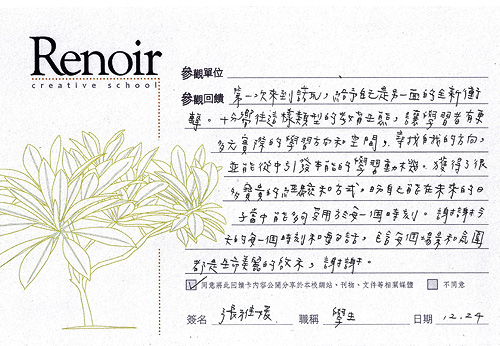 Renoir
creative school
參觀單位
參觀回饋 第一次來到訪玩，給予自己是另一面的全新衝
擊。十分嚮往這樣類型的教育生態，讓學習者有更
多元實際的學習方向和空間，尋找自我的方向，
並能從中引發本能的學習動機。獲得了很
多寶貴的經驗和方式。盼自己能在未來的日
子當中能夠受用於每一個時刻。謝謝今
天的每一個時刻和每句話，包含每個場景和氛圍
都是全美麗的饮末，謝謝。
同意將此回饋卡內容公開分享於本校網站、刊物、文件等相關媒體 不同意
簽名 張 職稱 學生 日期 12.24